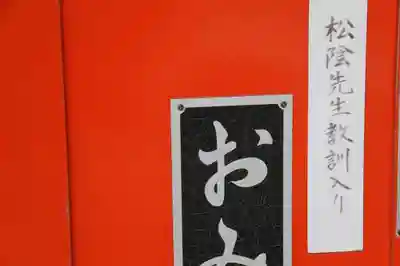 松陰先生教訓入り
おみ